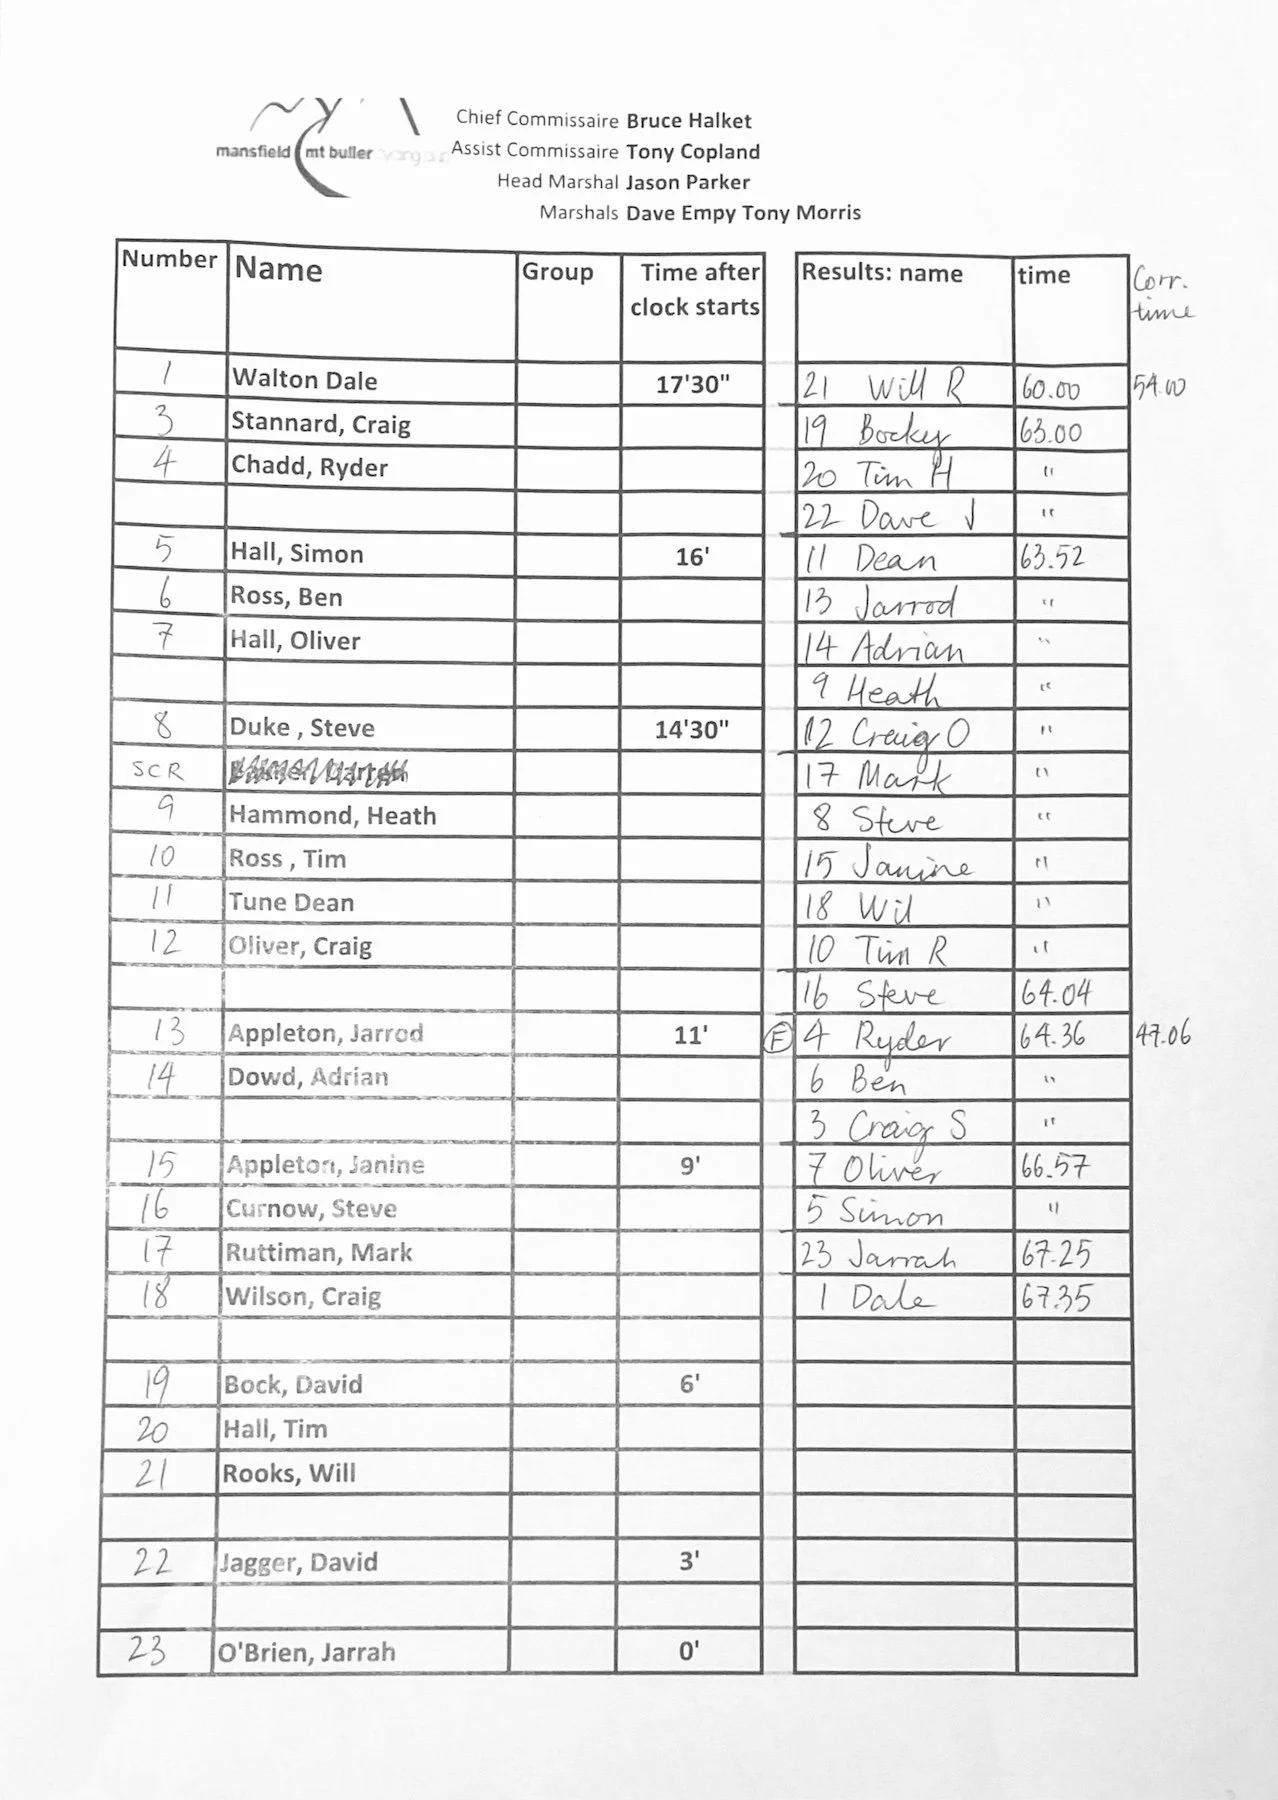 mansfield mt buller
Chief Commissaire Bruce Halket
Assist Commissaire Tony Copland
Head Marshal Jason Parker
Marshals Dave Empy Tony Morris
Number Name Group Time after clock starts
1 Walton Dale 17'30"
3 Stannard, Craig
4 Chadd, Ryder
5 Hall, Simon 16'
6 Ross, Ben
7 Hall, Oliver
8 Duke , Steve 14'30"
SCR
9 Hammond, Heath
10 Ross , Tim
11 Tune Dean
12 Oliver, Craig
13 Appleton, Jarrod 11'
14 Dowd, Adrian
15 Appleton, Janine 9'
16 Curnow, Steve
17 Ruttiman, Mark
18 Wilson, Craig
19 Bock, David 6'
20 Hall, Tim
21 Rooks, Will
22 Jagger, David 3'
23 O'Brien, Jarrah 0'
Results: name time Corr. time
21 Will R 60.00 54.00
19 Bocky 63.00
20 Tim H "
22 Dave J "
11 Dean 63.52
13 Jarrod "
14 Adrian "
9 Heath "
12 Craig O "
17 Mark "
8 Steve "
15 Janine "
18 Wil "
10 Tim R "
16 Steve 64.04
F 4 Ryder 64.36 47.06
6 Ben "
3 Craig S "
7 Oliver 66.57
5 Simon "
23 Jarrah 67.25
1 Dale 67.35